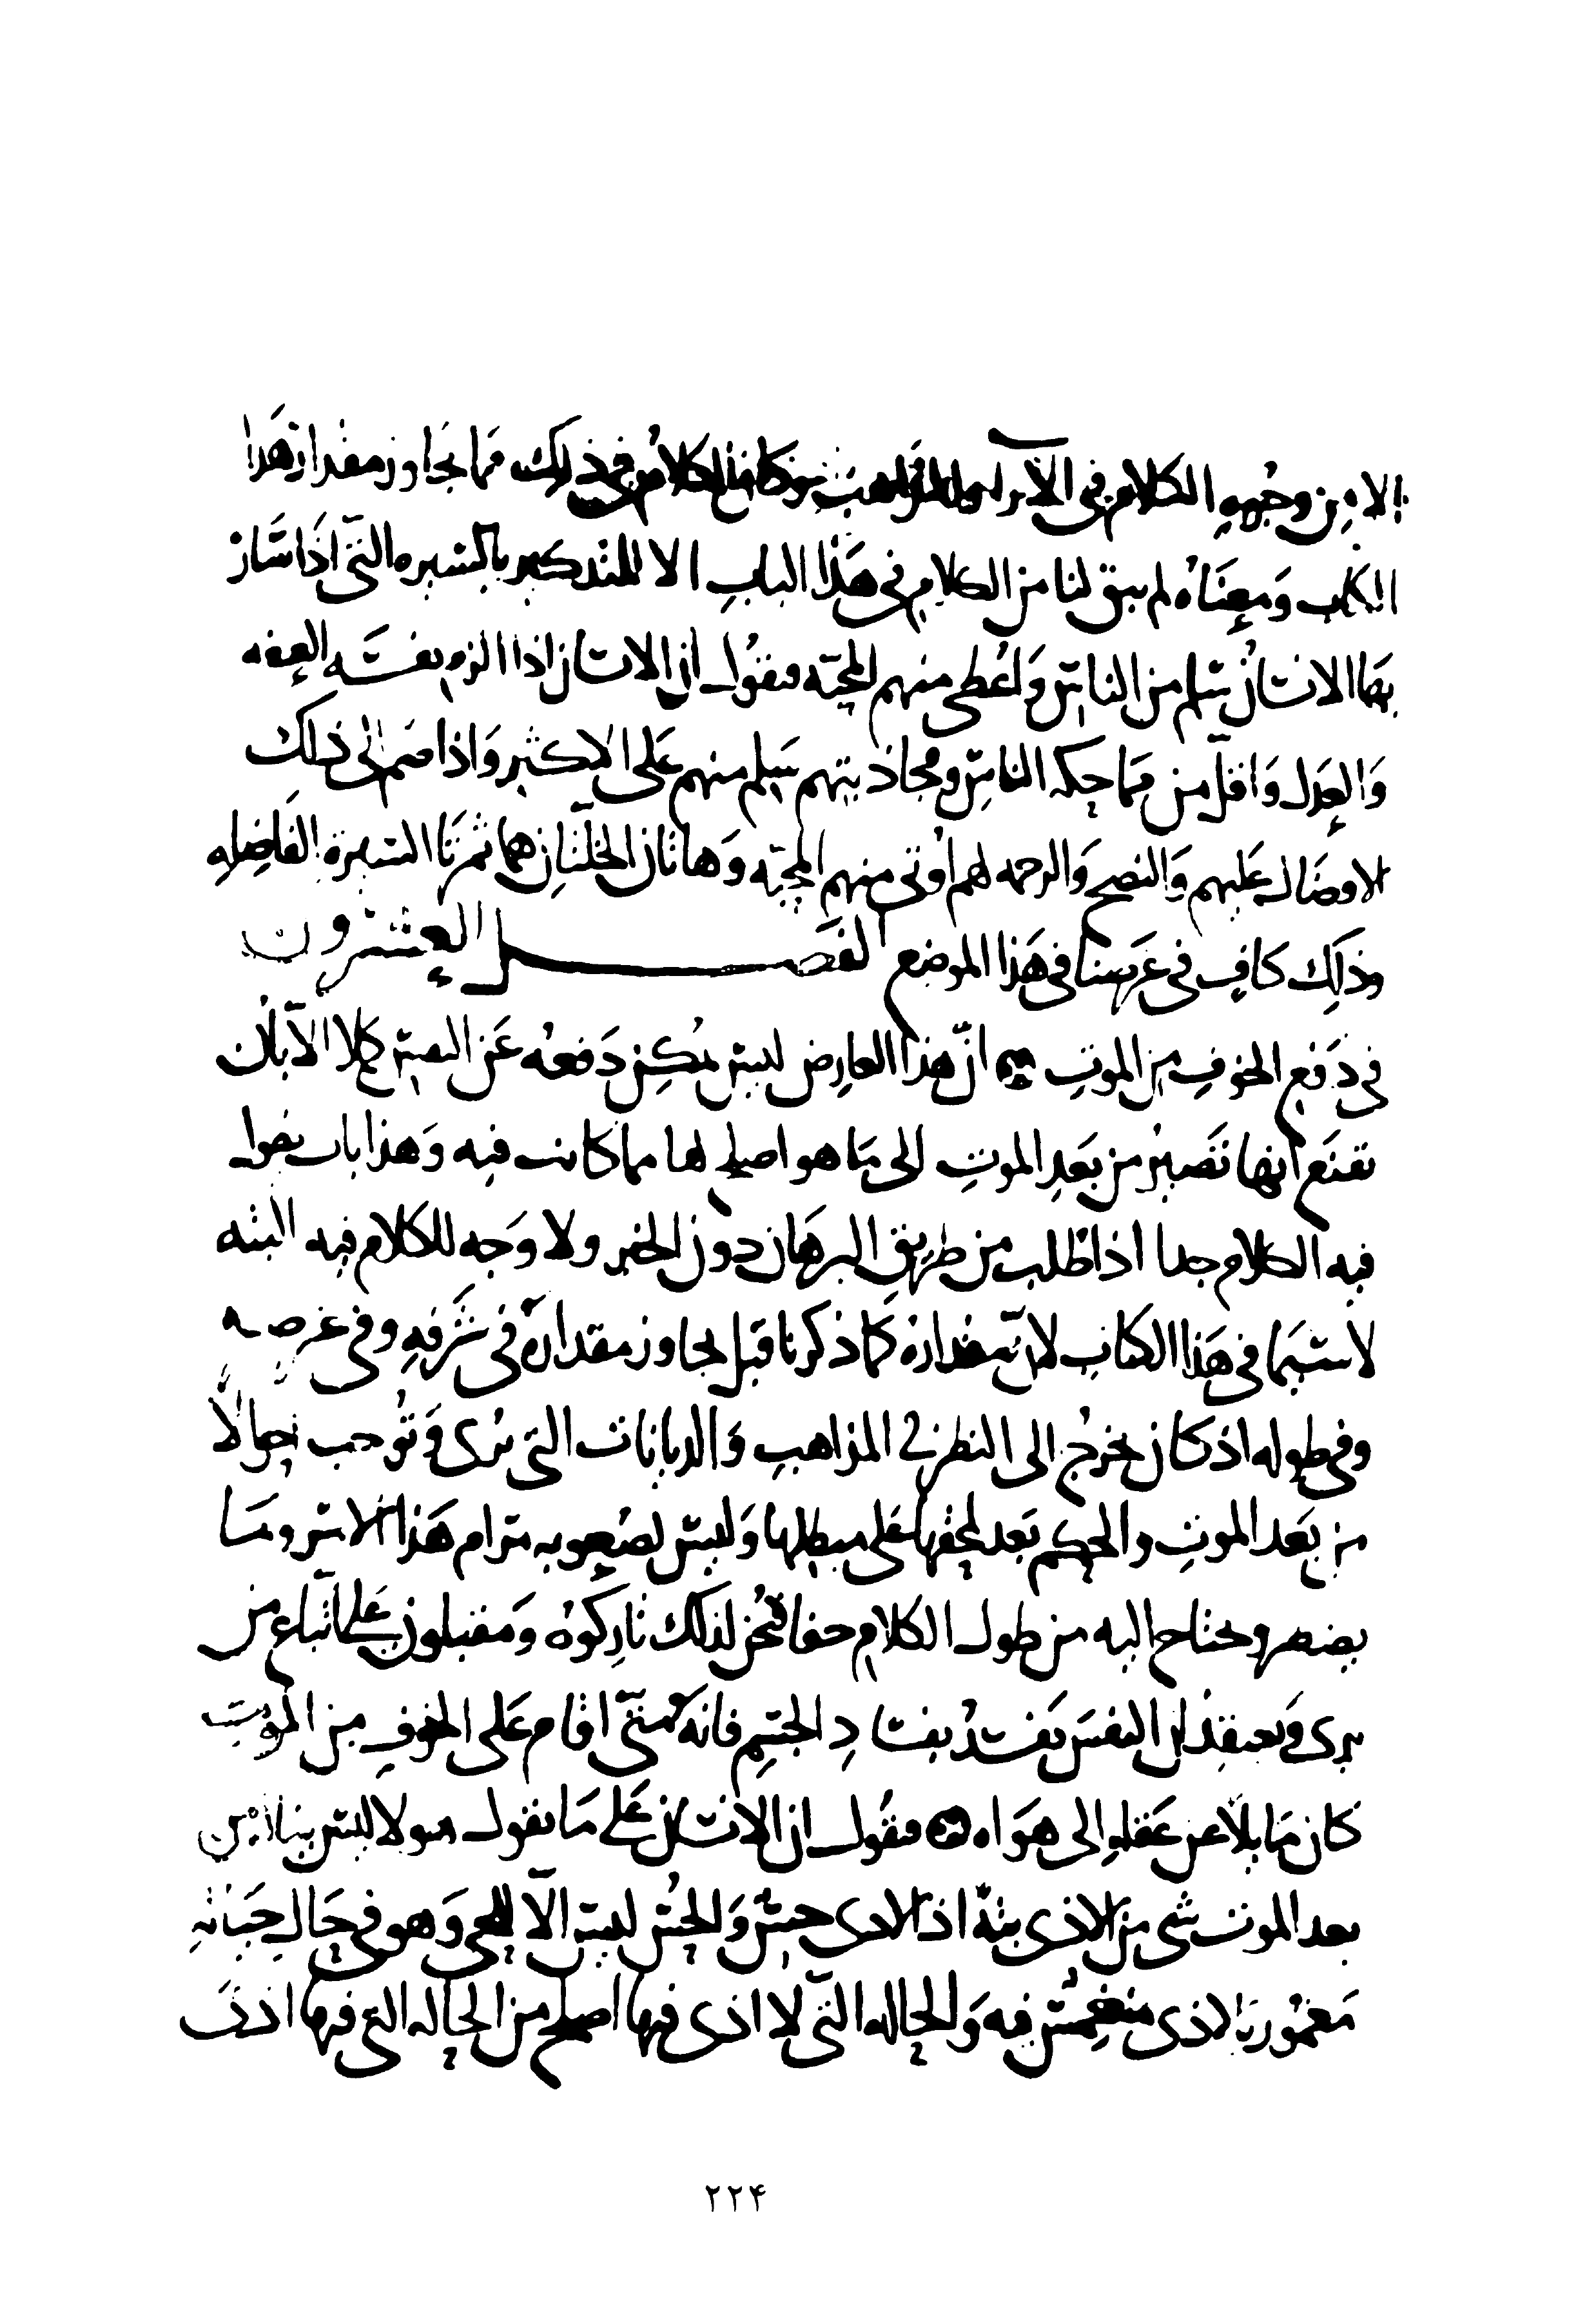 الا من وجوه الكلام فى الآراء والمذاهب وكان الكلام فى ذلك مما يجاوز مقدار هذا
الكتاب وَمعنَاهُ لم يبق لنا من الكلامِ فى هَذا البابِ الا التذكير بالسيره التى اذَا سَار
بهَا الانسَانُ سَلِم من الناسِ وَاُعطى منهم المحبّه فنقُول ان الانسَان اذا الزم نفسَه العِفه
وَالعَدل وَاقلّ من مَماحكه الناسِ ومجاذبتهم سَلِم منهم عَلى الاكثر وَاذا ضم الى ذلك
الافضَال عَليهم وَالنصح وَالرحمه لهم اُوتى منهم المحبّه وَهاتان الخلّتانِ هما ثمرَتَا السيرة الفَاضِلهِ
وذلِك كافٍ فى غَرضنا فى هَذا الموضع الفصل العِشرون
فى دَفع الخوفِ من الموتِ انّ هذا العارِض ليس يُمكِن دَفعُه عَن النفس كملا الّا بان
تقنَع انها تَصيرُ من بَعدِ الموتِ الى مَا هو اصلح لها مما كانت فيه وَهذا باب يطول
فيه الكلام جدا اذا طُلب من طريق البرهَان دون الخبر ولا وَجه للكلام فيه البته
لا سيّما فى هَذا الكتاب لانّ مقدارهُ كمَا ذكرنا قبل يجاوز مقدارهُ فى شَرفهِ وفى غرضه
وفى طوله اذ كان يخرجُ الى النظر فى المذاهبِ وَالديانات التى ترى وَتُوجب احوالًا
من بَعد الموتِ والحكم بَعد لمحقها عَلى مبطلها وَليس لصُعوبه مرام هَذا الامر ومَا
يضطر ويحتاج اليه من طول الكلامِ خفا فنحن لذلك تارِكوهُ وَمقبلون على اقناع من
يرى وَيعتقدُ ان النفسَ تَفسُدُ بفسَادِ الجسمِ فانّه متى اقام عَلى الخوفِ من الموتِ
كان مَايلًا عن عَقلهِ الى هوَاه فنقُول ان الانسَان عَلى مَا نقول هولا ليس يناله من
بعد الموت شى من الاذى بتّةً اذ الاذى حِسّ وَالحِسُّ ليس الّا للحى وَهو فى حَالِ حَيَاتهِ
مَغمُور بالاذى منغمِسٌ فيه وَالحاله التى لا اذى فيها اصلح من الحاله التى فيها اذى
۲۲۴